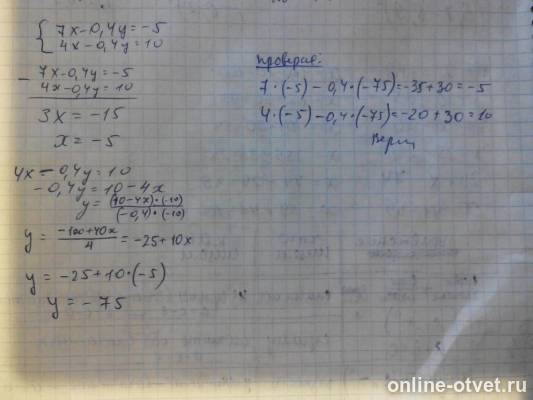 { 7x-0,4y=-5
4x-0,4y=10
- 7x-0,4y=-5
4x-0,4y=10
3x = -15
x = -5
4x-0,4y=10
-0,4y=10-4x
y= (10-4x)·(-10) / (-0,4)·(-10)
y = -100+40x / 4 = -25+10x
y = -25+10·(-5)
y = -75
Проверка:
7·(-5)-0,4·(-75)=-35+30=-5
4·(-5)-0,4·(-75)=-20+30=10
online-otvet.ru